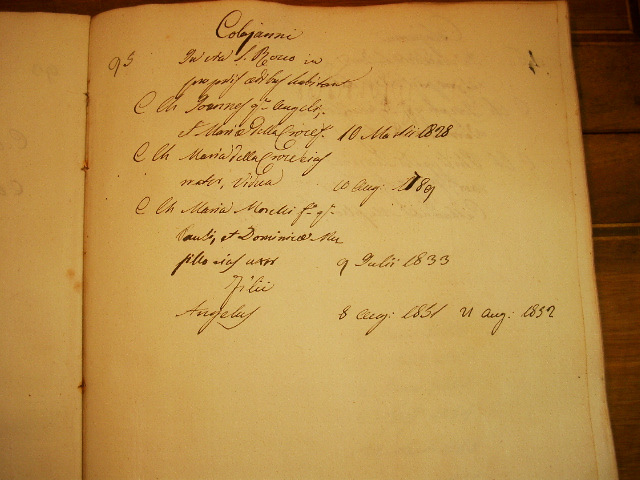 Colojanni
95 In via S. Rocco in
propriis ædibus habitant
C Ch Joannes q.m Angeli,
et Mariæ della Croce f. 10 Martii 1828
C Ch Maria della Croce ejus
mater, vidua 10 aug:
C Ch Maria Morelli f.a q.m
et Dominicæ
ejus uxor 9 Julii 1833
Filii
Angelus 8 aug: 1851 21 aug: 1852